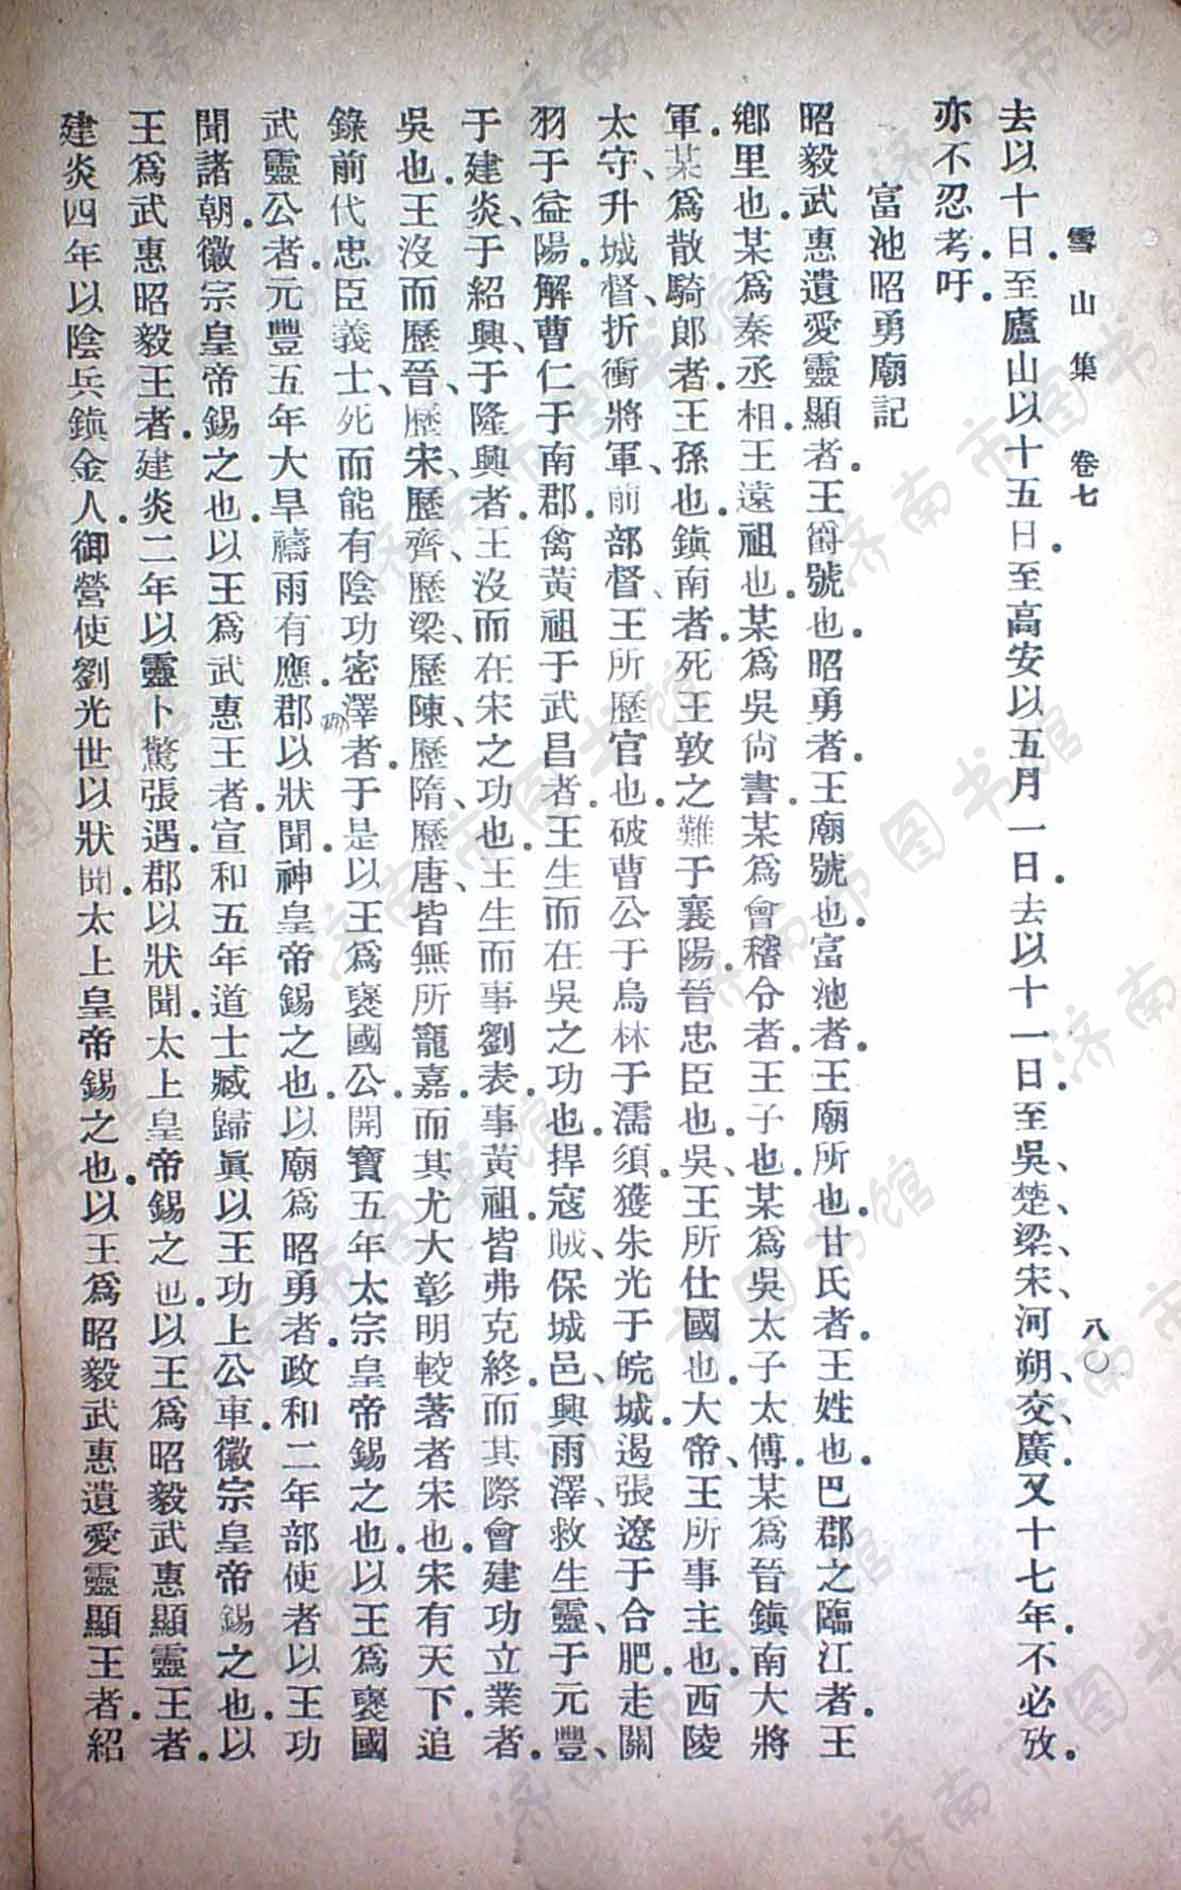 雪山集 卷七 八〇
去以十日至廬山以十五日至高安以五月一日去以十一日至吳、楚、梁、宋、河朔、交、廣又十七年不必攷
亦不忍考吁
富池昭勇廟記
昭毅武惠遺愛靈顯者王爵號也昭勇者王廟號也富池者王廟所也甘氏者王姓也巴郡之臨江者王
鄉里也某爲秦丞相王遠祖也某爲吳尙書某爲會稽令者王子也某爲吳太子太傅某爲晉鎭南大將
軍某爲散騎郞者王孫也鎭南者死王敦之難于襄陽晉忠臣也吳、王所仕國也大帝、王所事主也西陵
太守、升城督、折衝將軍、前部督、王所歷官也破曹公于烏林于濡須獲朱光于皖城遏張遼于合肥走關
羽于益陽解曹仁于南郡禽黃祖于武昌者王生而在吳之功也捍寇賊、保城邑、興雨澤、救生靈、于元豐、
于建炎、于紹興、于隆興者王沒而在宋之功也王生而事劉表事黃祖皆弗克終而其際會建功立業者
吳也王沒而歷晉、歷宋、歷齊、歷梁、歷陳、歷隋、歷唐、皆無所寵嘉而其尤大彰明較著者宋也宋有天下追
錄前代忠臣義士、死而能有陰功密澤者于是以王爲襃國公開寶五年太宗皇帝錫之也以王爲襃國
武靈公者元豐五年大旱禱雨有應郡以狀聞神皇帝錫之也以廟爲昭勇者政和二年部使者以王功
聞諸朝徽宗皇帝錫之也以王爲武惠王者宣和五年道士臧歸眞以王功上公車徽宗皇帝錫之也以
王爲武惠昭毅王者建炎二年以靈卜驚張遇郡以狀聞太上皇帝錫之也以王爲昭毅武惠顯靈王者
建炎四年以陰兵鎭金人御營使劉光世以狀聞太上皇帝錫之也以王爲昭毅武惠遺愛靈顯王者紹